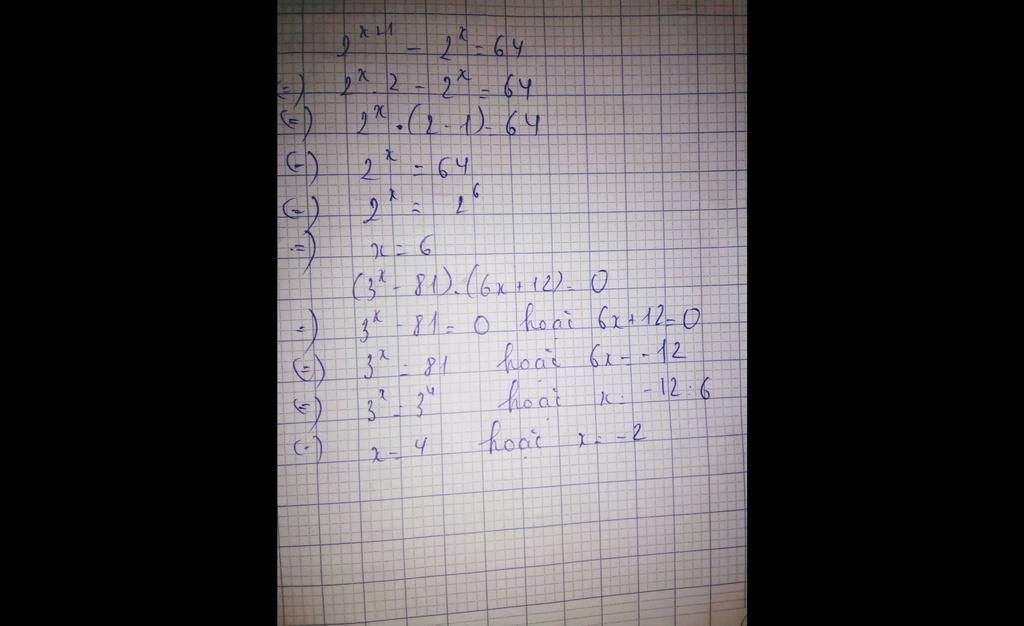 2^{x+1} - 2^x = 64
(=) 2^x . 2 - 2^x = 64
(=) 2^x . (2 - 1) = 64
(=) 2^x = 64
(=) 2^x = 2^6
=) x = 6
(3^x - 81) . (6x + 12) = 0
=) 3^x - 81 = 0 hoặc 6x + 12 = 0
(=) 3^x = 81 hoặc 6x = -12
(=) 3^x = 3^4 hoặc x = -12 : 6
(=) x = 4 hoặc x = -2